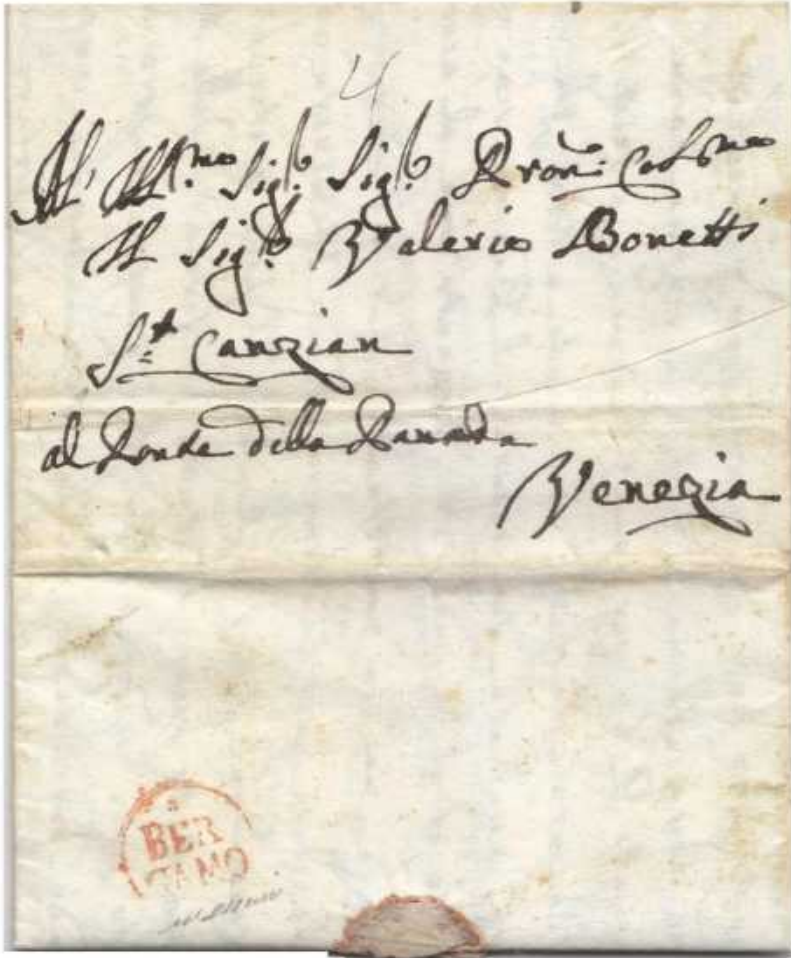 4
All' Ill.mo Sig.r Sig.r Pron: Col.mo
Il Sig.r Valerio Bonetti
S.t Canzian
al Ponde della Panada
Venezia
BER
GAMO